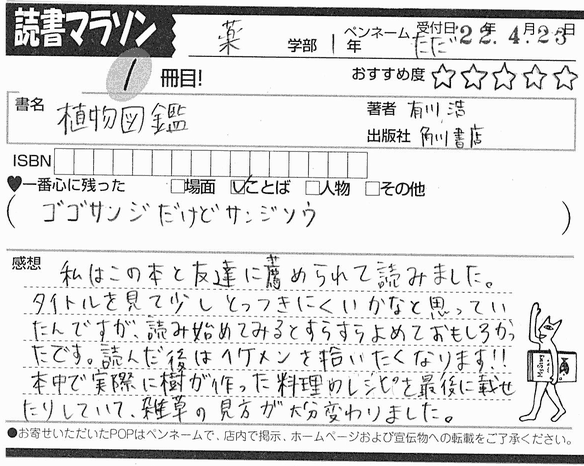 読書マラソン
薬 学部 1年 ペンネーム ただ
受付日 '22年4月25日
1 冊目!
おすすめ度 ☆☆☆☆☆
書名 植物図鑑
著者 有川 浩
出版社 角川書店
ISBN
♥一番心に残った □場面 ☑ことば □人物 □その他
( ゴゴサンジだけどサンジソウ )
感想
私はこの本と友達に薦められて読みました。
タイトルを見て少しとっつきにくいかなと思ってい
たんですが、読み始めてみるとすらすらよめておもしろかっ
たです。読んだ後はイケメンを拾いたくなります!!
本中で実際に樹が作った料理のレシピを最後に載せ
たりしていて、雑草の見方が大分変わりました。
●お寄せいただいたPOPはペンネームで、店内で掲示、ホームページおよび宣伝物への転載をご了承ください。